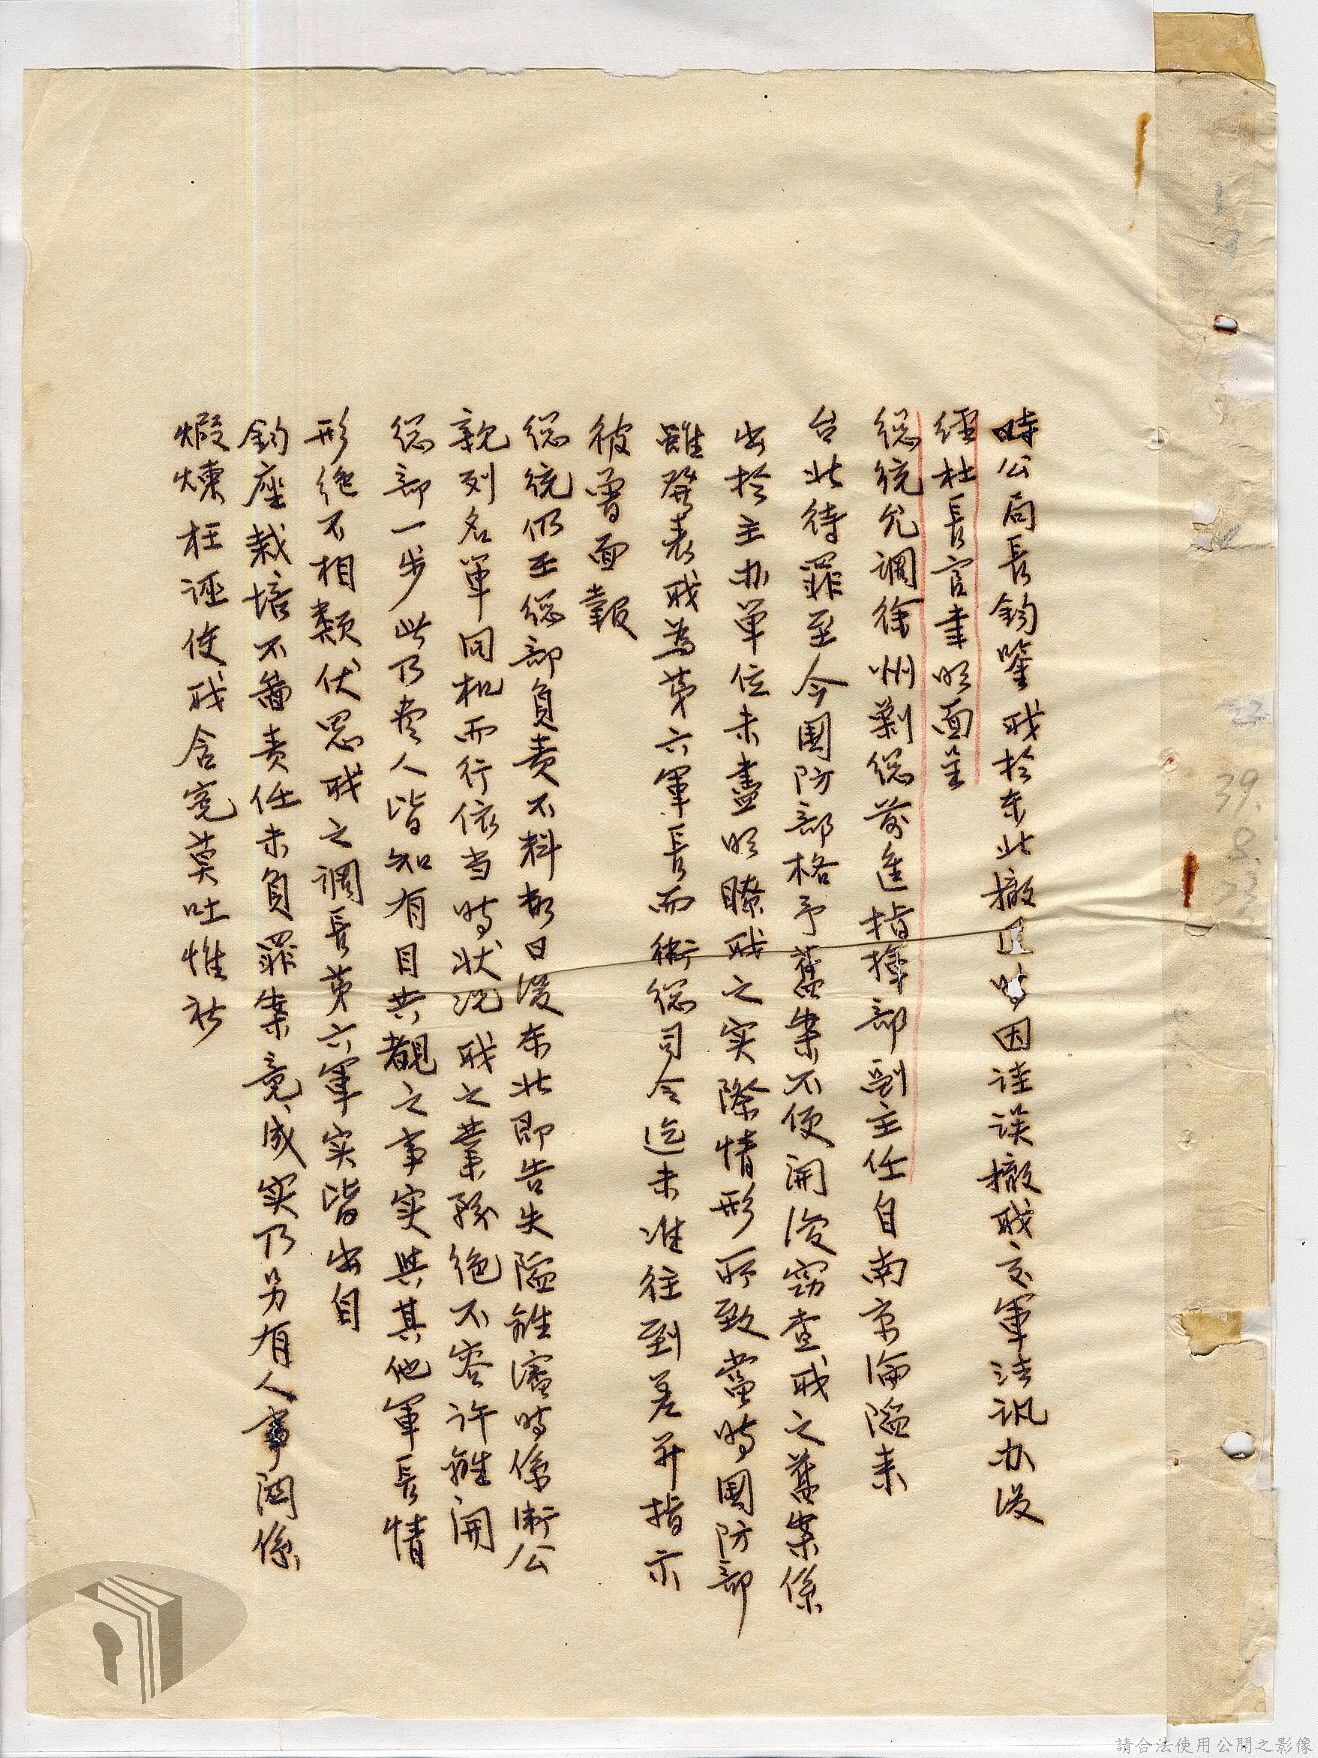 時公局長鈞鑒職於東北撤退時因詿誤撤職交軍法訊办後
經杜長官聿明面呈
總統允調徐州剿總前進指揮部副主任自南京淪陷来
台北待罪至今國防部格予舊案不便開復窃查職之舊案係
出於主办單位未盡明瞭職之实際情形所致當時國防部
雖發表職為第六軍長而衛總司令迄未准往到差并指示
彼曾面報
總統仍在總部負責不料數日後东北即告失陷雖瀋時係衛公
親列名單同机而行依当時狀況職之業務絕不容許離開
總部一步此乃盡人皆知有目共覩之事实與其他軍長情
形絕不相類伏思職之調長第六軍实皆出自
鈞座栽培不啻責任未負罪案竟成实乃另有人事関係
煅煉枉誣使職含寃莫吐惟祈
39.
8.
請合法使用公開之影像